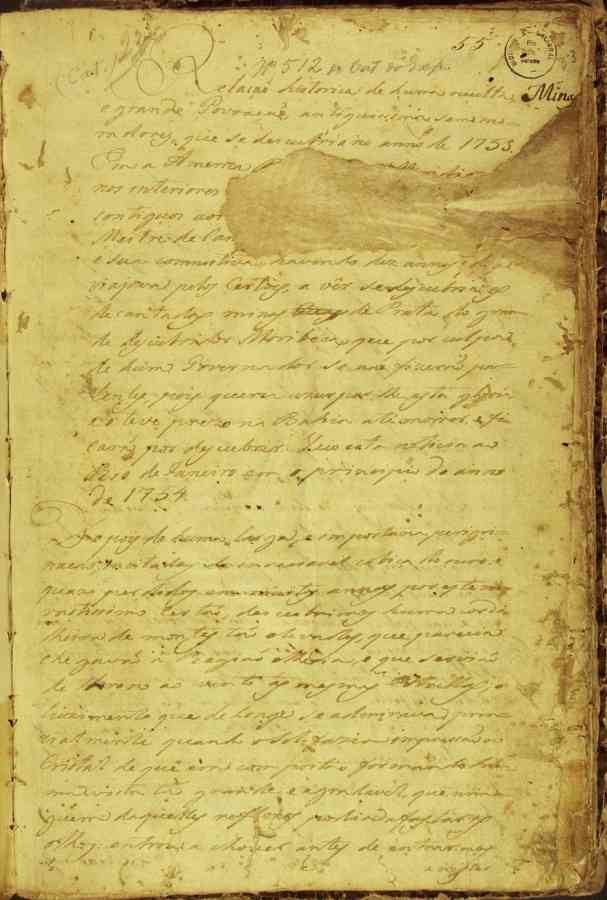 55
Nº 512
Minas
Relação historica de huma occulta,
e grande Povoação, antiquissima sem mo-
radores, que se descubriu no anno de 1753.
Em a America
nos interiores
contiguos aos
Mestre de Can
e sua comitiva, havendo dez annos, que
viajava pelos certões, a vêr se descubria as
decantadas minas de Prata do gran
de descubridor Moribeca, que por culpa
de hum Governador se não fizerão pa-
tentes, pois queria uzurparlhe esta gloria
e o teve prezo na Bahia até morrer, e fi
carão por descubrir. Veio esta noticia ao
Rio de Janeiro em o principio do anno
de 1754.
Depois de huma larga, e importuna perigri-
nação, incitados da insaciavel cubiça do ouro, e
quazi perdidos em muitos annos por este
vastissimo Certão, descubrimos huma cordi-
lheira de montes tão elevados, que parecia
chegavão a Região etheria, e que servião
de throno ao vento, às mesmas Estrellas; o
luzimento que de longe se admirava, prin
cipalmente quando o Sol fazia impressão ao
Cristal de que era composto e formando hu-
ma vista tão grande, e agradavel, que nin
guem daquelles reflexos podia afastar os
olhos: entrou a chover antes de entrarmos
a registar